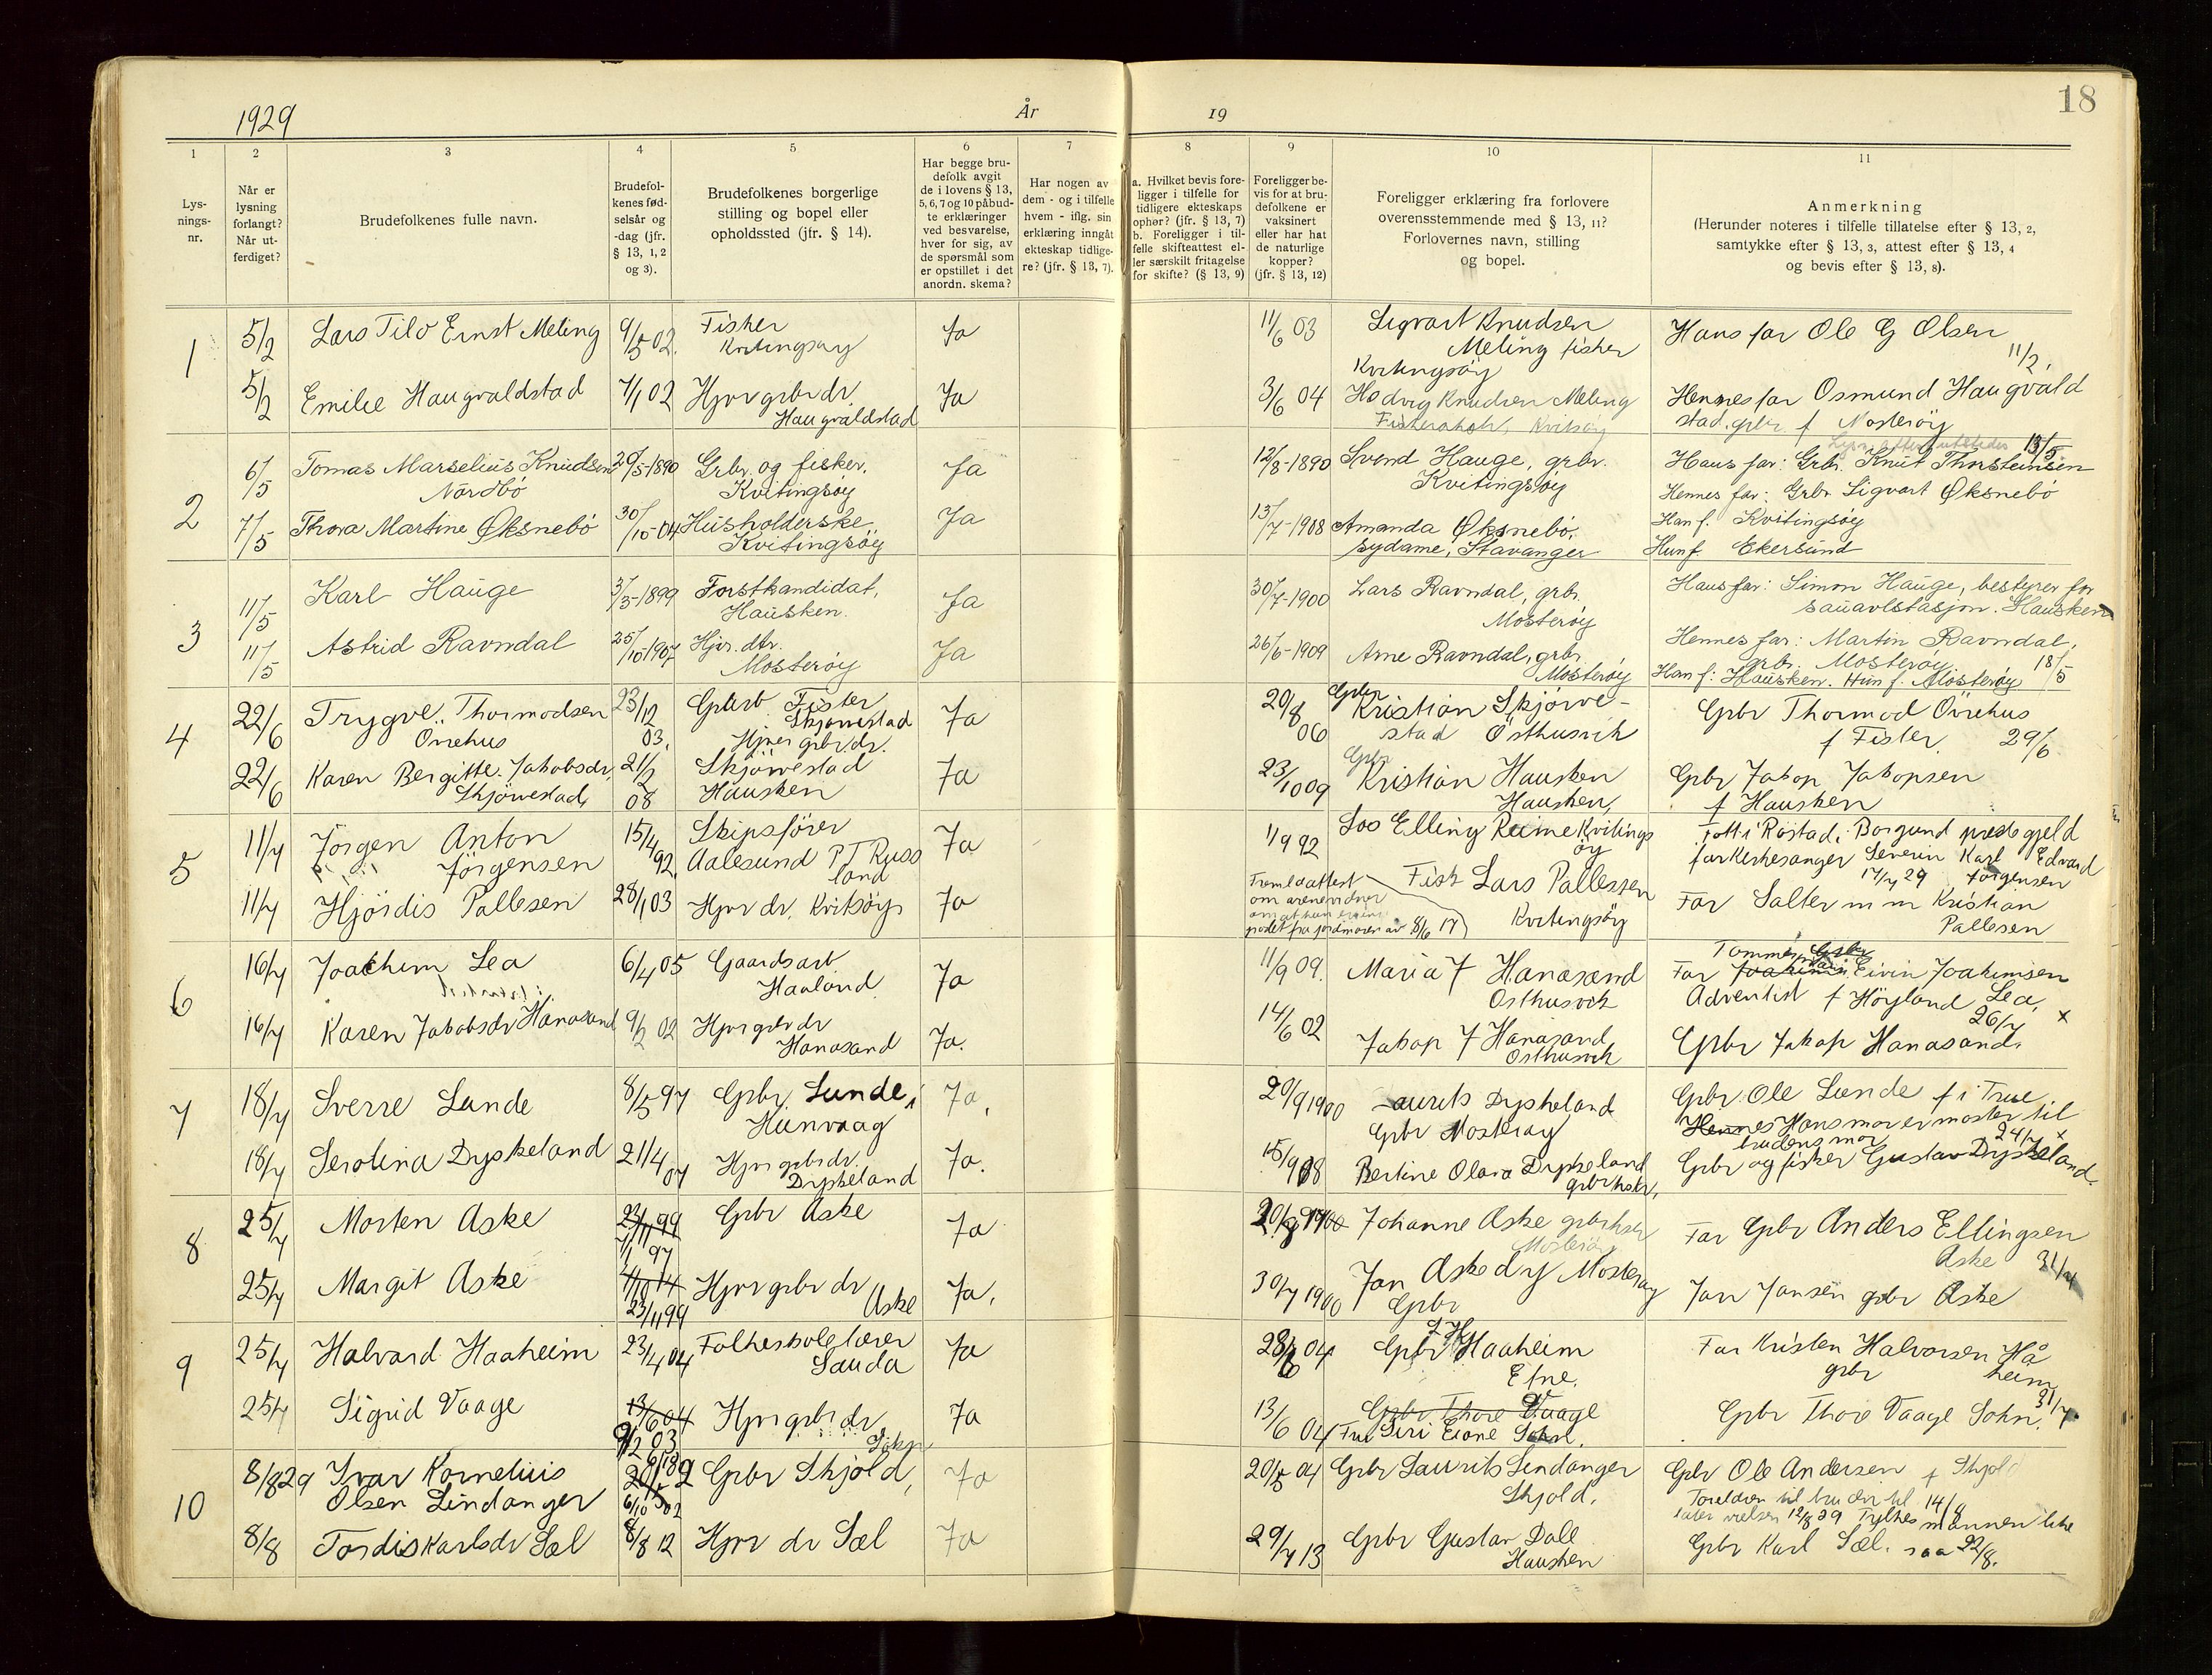 18
1929 År 19
1 2 3 4 5 6 7 8 9 10 11
Lys-
nings-
nr.
Når er
lysning
forlangt?
Når ut-
ferdiget?
Brudefolkenes fulle navn.
Brudefol-
kenes fød-
selsår og
-dag (jfr.
§ 13, 1, 2
og 3).
Brudefolkenes borgerlige
stilling og bopel eller
opholdssted (jfr. § 14).
Har begge bru-
defolk avgit
de i lovens § 13,
5, 6, 7 og 10 påbud-
te erklæringer
ved besvarelse,
hver for sig, av
de spørsmål som
er opstillet i det
anordn. skema?
Har nogen av
dem - og i tilfelle
hvem - iflg. sin
erklæring inngåt
ekteskap tidlige-
re? (jfr. § 13, 7).
a. Hvilket bevis fore-
ligger i tilfelle for
tidligere ekteskaps
ophør? (jfr. § 13, 7)
b. Foreligger i til-
felle skifteattest el-
ler særskilt fritagelse
for skifte? (§ 13, 9)
Foreligger be-
vis for at bru-
defolkene er
vaksinert
eller har hat
de naturlige
kopper?
(jfr. § 13, 12)
Foreligger erklæring fra forlovere
overensstemmende med § 13, 11?
Forlovernes navn, stilling
og bopel.
Anmerkning
(Herunder noteres i tilfelle tillatelse efter § 13, 2,
samtykke efter § 13, 3, attest efter § 13, 4
og bevis efter § 13, 8).
1 5/2 Lars Tilo Ernst Meling 9/5 02. Fisker Ja 11/6 03 Sigvart Knudsen Hans far Ole G Olsen
Kvitingsøy Meling fisker 11/2.
Kvitingsøy
5/2 Emilie Haugvaldstad 7/1 02 Hjvr grbr dr. Ja 3/6 04 Hedvig Knudsen Meling Hennes far Osmund Haugvald
Haugvaldstad Kvitsøy stad. grbr f Mosterøy
13/5
2 6/5 Tomas Marselius Knudsen 29/5-1890 Grbr. og fisker. Ja 12/8-1890 Svend Hauge, grbr. Hans far: Grbr. Knut Thorsteinsen
Nordbø Kvitingsøy Kvitingsøy Hennes far: Grbr Sigvart Øksnebø
7/5 Thora Martine Øksnebø 30/10-04 Husholderske Ja 13/7-1908 Amanda Øksnebø, Han f. Kvitingsøy
Kvitingsøy sydame, Stavanger Hun f. Ekersund
3 11/5 Karl Hauge 3/3-1899 Forstkandidat, Ja 30/7-1900 Lars Ravndal, grbr. Hans far: Simon Hauge, bestyrer for
Hausken. Mosterøy sauavlstasjon. Hausken
11/5 Astrid Ravndal 25/10-1907 Hjvr. dtr. Ja 26/6-1909 Arne Ravndal, grbr. Hennes far: Martin Ravndal,
Mosterøy Mosterøy grbr. Mosterøy 18/5
Han f: Hausken. Hun f. Mosterøy
4 22/6 Trygve Thormodsen 23/12 Fister Ja 20/8 Grbr Kristian Skjørve- Grbr Thormod Ørrehus
Orrehus 03. Skjørvestad 06 stad Østhusvik f Fister. 29/6
Hjvr grbr. dr.
22/6 Karen Bergitte Jakobsdr. 21/2 Skjørvestad Ja 23/10 09 Grbr Kristian Hausken Grbr Jakop Jakopsen
Skjørvestad 08 Hausken Hausken, f Hausken
5 11/7 Jørgen Anton 15/4 Skipsfører Ja 1/9 92 Los Elling Reime Kvitings Født i Rostad, Borgund prestegjeld
Jørgensen 92. Aalesund P T Russ øy far Kirkesanger Severin Karl Edvard
land 17/7 29 Jørgensen
11/7 Hjørdis Pallesen 28/1 03 Hjvr dr. Kvitsøy Ja Fisk Lars Pallesen Far Salter m m Kristian
Kvitingsøy Pallesen
Fremlaattest
8/6 17
6 16/7 Joachim Lea 6/4 05 Gaardsarb Ja 11/9 09. Maria J Hanasand Far Eivin Joakimsen
Haaland Osthusvik Adventist f Høyland Lea.
26/7 x
16/7 Karen Jakobsdr Hanasand 9/2 02 Hjvr grbr dr Ja. 14/6 02 Jakop J Hanasand Grbr Jakop Hanasand.
Hanasand Osthusvik
7 18/7 Sverre Lunde 8/5 97 Grbr. Lunde i Ja, 20/9 1900 Laurits Dyskeland Grbr Ole Lunde f i True
Hunvaag Grbr Mosterøy Hennes Hans mor er moster til
brudens mor 24/7 x
18/7 Serolina Dyskeland 21/4 07 Hjvr grbr dr. Ja. 15/9 08 Bertine Olava Dyskeland Grbr og fisker Gustav Dyskeland.
Dyskeland
8 25/7 Morten Aske 23/11 99 Grbr Aske Ja 1900 Johanne Aske Far Grbr Anders Ellingsen
1/1 97 Mosterøy Aske 31/7
25/7 Margit Aske 1/10 14 Hjvr grbr dr Ja, 30/7 1900 Jan Aske Mosterøy Jan Jansen grbr Aske
23/11 99 Aske Grbr
9 25/7 Halvard Haaheim 23/4 04 Folkeskolelærer Ja 28/6 04 Grbr Haaheim Far Kristen Halvorsen Hå
Sauda Etne. grbr heim
31/7.
25/7 Sigrid Vaage 13/6 04 Hjvr grbr dr Ja 13/6 04 Grbr Thore Vaage Grbr Thore Vaage Sokn.
9/2 03 Sokn Fru Siri Eione Sokn.
10 8/8 29 Ivar Kornelius Grbr Skjold, Ja 20/5 04 Grbr Laurits Lindanger Grbr Ole Andersen f Skjold
Olsen Lindanger 6/10 02 Skjold. Foreldre til 14/9
12/8 29 Fylkesmannen
8/8 Tordis Karlsdr Sæl 8/8 12 Hjvr dr Sæl Ja 29/7 13 Grbr Gustav Dale Grbr Karl Sæl. 22/8.
Hausken